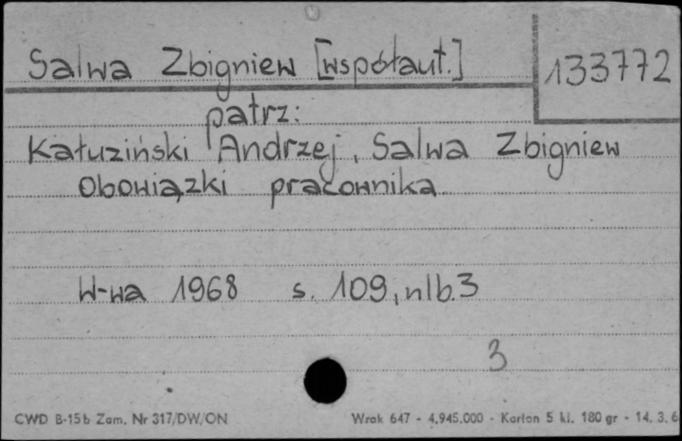 Salwa Zbigniew [współaut.]
133772
patrz:
Kałuziński Andrzej, Salwa Zbigniew
Obowiązki pracownika
W-wa 1968 s. 109, nlb. 3
3
CWD B-15b Zam. Nr 317/DW/ON
Wrak 647 - 4.945.000 - Karton 5 kl. 180 gr - 14. 3. 6